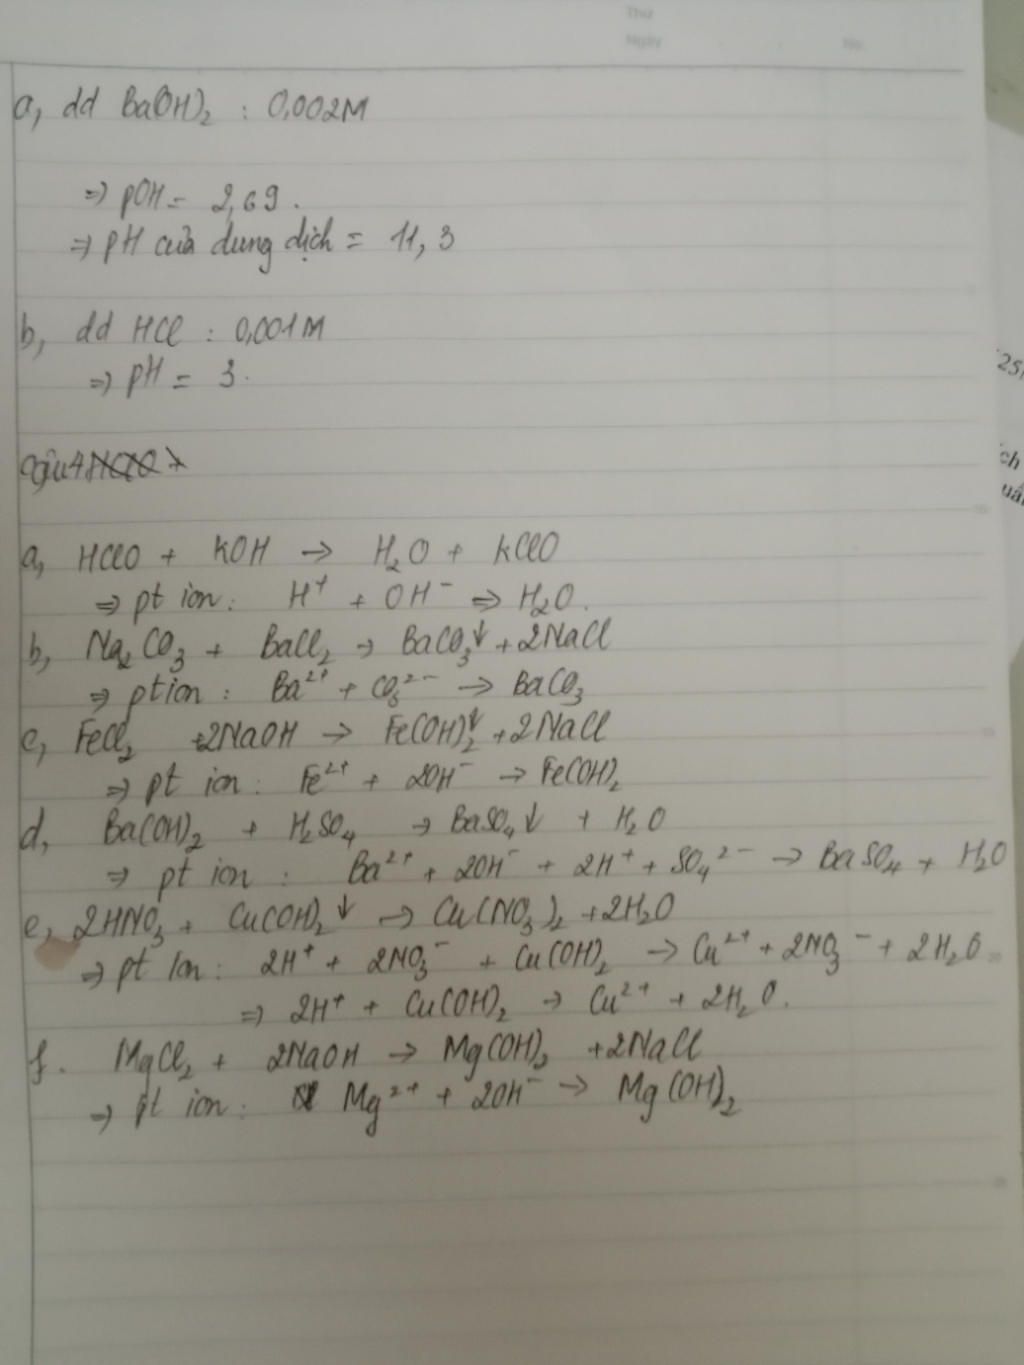 Thứ
Ngày
No.
a, dd Ba(OH)₂ : 0,002M
=> pOH = 2,69.
=> pH của dung dịch = 11,3
b, dd HCl : 0,001M
=> pH = 3.
25,
ch
Câu 4
uẩ
a, HClO + KOH → H₂O + KClO
=> pt ion: H⁺ + OH⁻ => H₂O.
b, Na₂CO₃ + BaCl₂ → BaCO₃↓ + 2NaCl
=> pt ion : Ba²⁺ + CO₃²⁻ → BaCO₃
c, FeCl₂ +2NaOH → Fe(OH)₂↓ + 2NaCl
=> pt ion: Fe²⁺ + 2OH⁻ → Fe(OH)₂
d, Ba(OH)₂ + H₂SO₄ → BaSO₄↓ + H₂O
=> pt ion : Ba²⁺ + 2OH⁻ + 2H⁺ + SO₄²⁻ → BaSO₄ + H₂O
e, 2HNO₃ + Cu(OH)₂↓ → Cu(NO₃)₂ +2H₂O
=> pt Ion: 2H⁺ + 2NO₃⁻ + Cu(OH)₂ → Cu²⁺ + 2NO₃⁻ + 2H₂O
=> 2H⁺ + Cu(OH)₂ → Cu²⁺ + 2H₂O.
f. MgCl₂ + 2NaOH → Mg(OH)₂ +2NaCl
=> pt ion: Mg²⁺ + 2OH⁻ → Mg(OH)₂